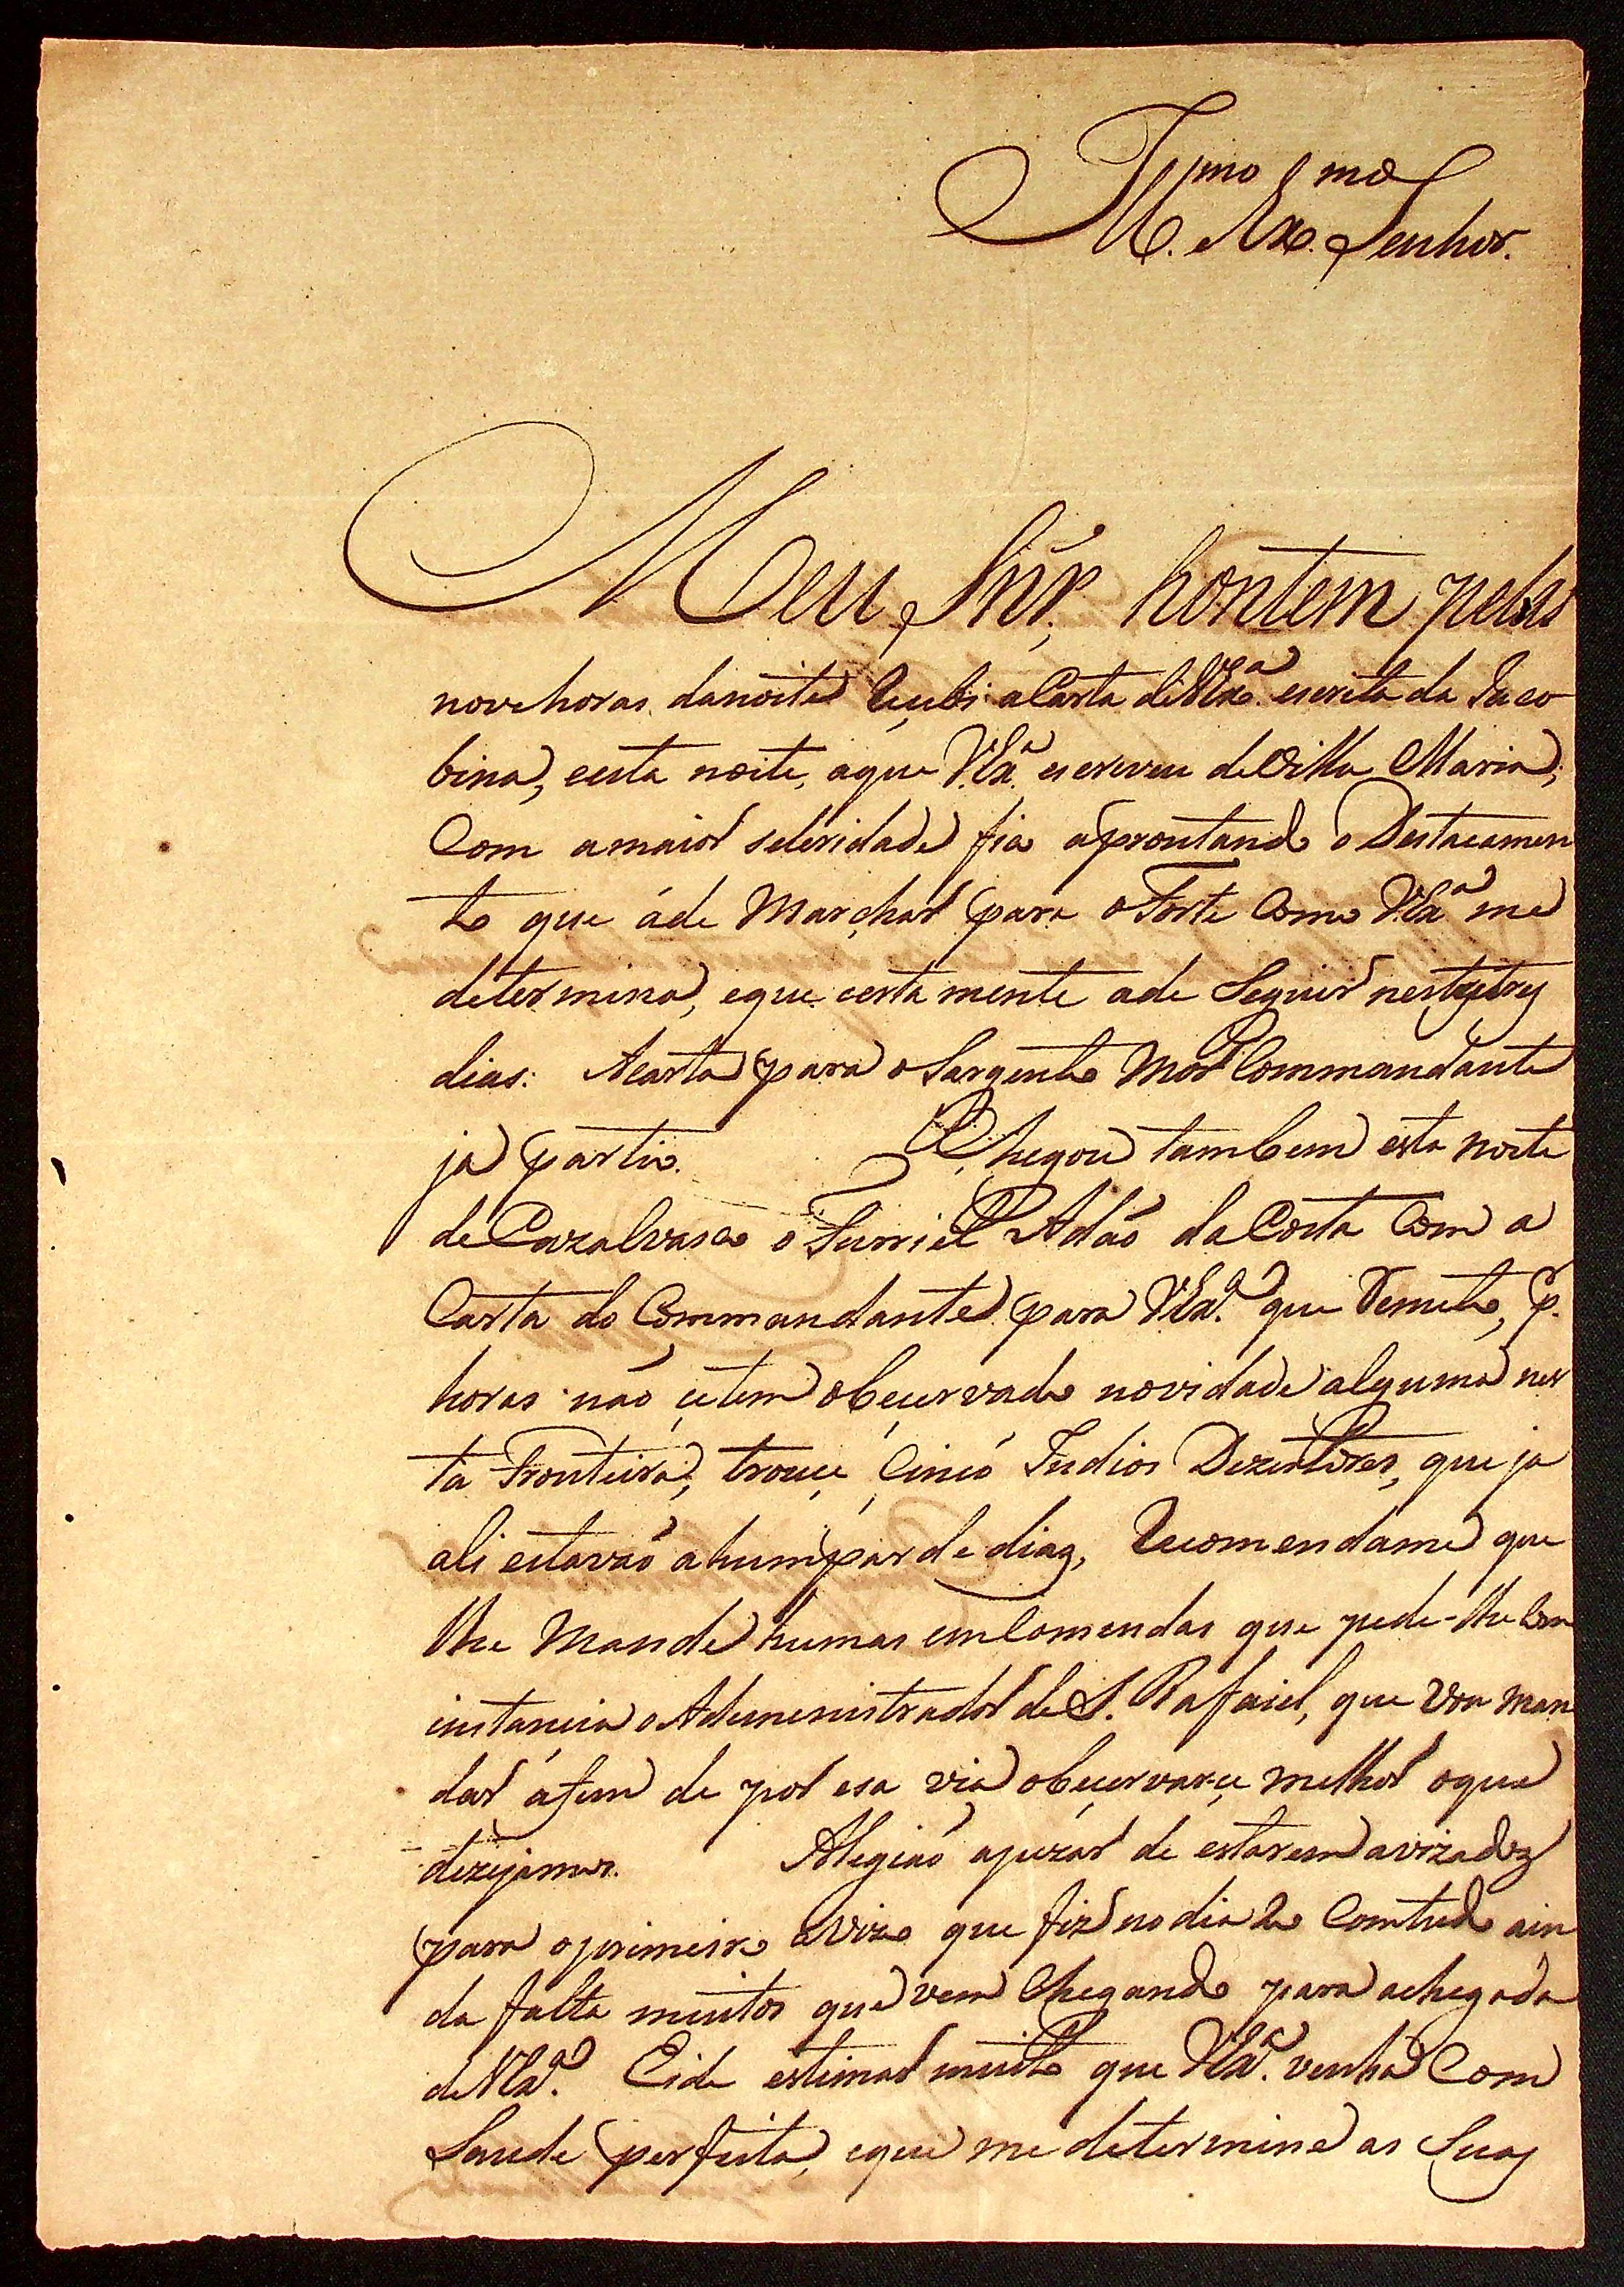 Ill.mo Ex.mo Senhor.
Meu Snr., hontem pelas
nove horas da noite recebi a Carta de V. Exa. escrita da Jaco
bina, e esta noite, a que V. Exa. escreveu de Villa Maria;
Com a maior seleridade fica aprontando o Destacamen
to que áde Marchar para o Forte Como V. Exa. me
determina, e que certamente ade Seguir nestes tres
dias: A carta para o Sargento Mor Commandante
ja partio. Chegou tambem esta noite
de Cazalvasco o Furriel Adão da Costa Com a
Carta do Commandante para V. Exa. que Remeto, p.
horas não çe tem obçervado novidade alguma nes
ta Fronteira, trouçe Cinco Indios Dezertores, que ja
ali estavão a hum par de dias, Recomendame que
lhe Mande humas emComendas que pede-lhe Com
instancia oAdemenistrador de S. Rafaiel, que vou man
dar áfim de por esa via obçervarçe melhor o que
dezejamos. A legião apezar de estarem avizados
para o primeiro avizo que fiz no dia 2 Comtudo ain
da falta muitos que vem Chegando para a chegada
de V. Exa. Eide estimar muito que V. Exa. venha Com
Saude perfeita, e que me determine as Suas